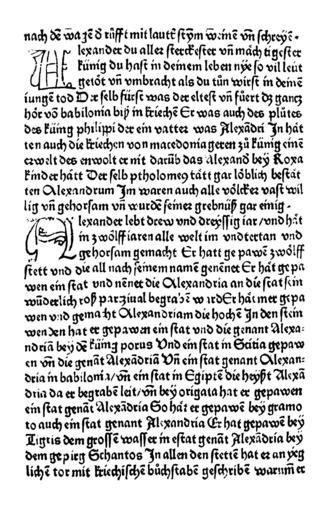 nach dē wagē d rüfft mit lautē stym weinē vn̄ schreyē ·
Alexander du aller sterckester vn̄ mächtigester
künig du hast in deinem leben nye so vil leüt
getöt vn̄ vmbracht als du tün wirst in deinē
iungen tod Der selb fürst was der eltest vn̄ fuert dz gancz
hör vō babilonia biß in kriechē Er was auch des plütes
des künig philippi der ein vatter was Alexādri In hāt
ten auch die kriechen von macedonia geren zů künig einē
erwelt des enwolt er nit darūb das Alexand bey Roxa
kinder hātt Der selb ptholomey tätt gar löblich bestät
ten Alexandrum Im waren auch alle völcker vast wil
lig vn̄ gehorsam vn̄ wurdē seiner grebnüß gar einig ·
Alexander lebt drew vnd dreyssig iar / vnd hāt
in zwölff iaren alle welt im vndtertan vnd
gehorsam gemacht Er hatt gepawē zwölff
stett vnd die all nach seinem namē genēnet Er hāt gepa
wen ein stat vnd nēnet die Alexandria an die stat sein
wůderlich roß parziual begrabē ward Er hāt mer gepa
wen vnd gemacht Alexandriam die hochē In den stein
wenden hat er gepawen ein stat vnd die genant Alexa-
ndriā bey dē künig porus Vnd ein stat in Scitia gepaw
en vn̄ die genāt Alexādriā Vn̄ ein stat genant Alexan-
dria in babilonia / vn̄ ein stat in Egiptē die heyßt Alexā
dria da er begrabē leit / vn̄ bey origata hat er gepawen
ein stat genāt Alexādria So hāt er gepawē bey gramo
to auch ein stat genant Alexandria Er hāt gepawē bey
Tigris dem grossē wasser in estat genāt Alexādria bey
dem gepirg Schantos In allen den stettē hāt er an yeg
lichē tor mit kriechischē bůchstabē geschribē warum̄ er